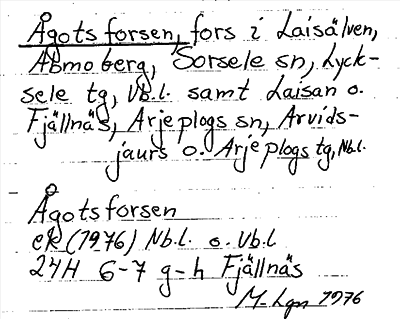 Ågotsforsen, fors i Laisälven,
Abmoberg, Sorsele sn, Lyck-
sele tg, Vb.l. samt Laisan o.
Fjällnäs, Arjeplogs sn, Arvids-
jaurs o. Arjeplogs tg, Nb.l.
Ågotsforsen
ek (1976) Nb.l. o. Vb.l
24H 6-7 g-h Fjällnäs
M. Lgn 1976